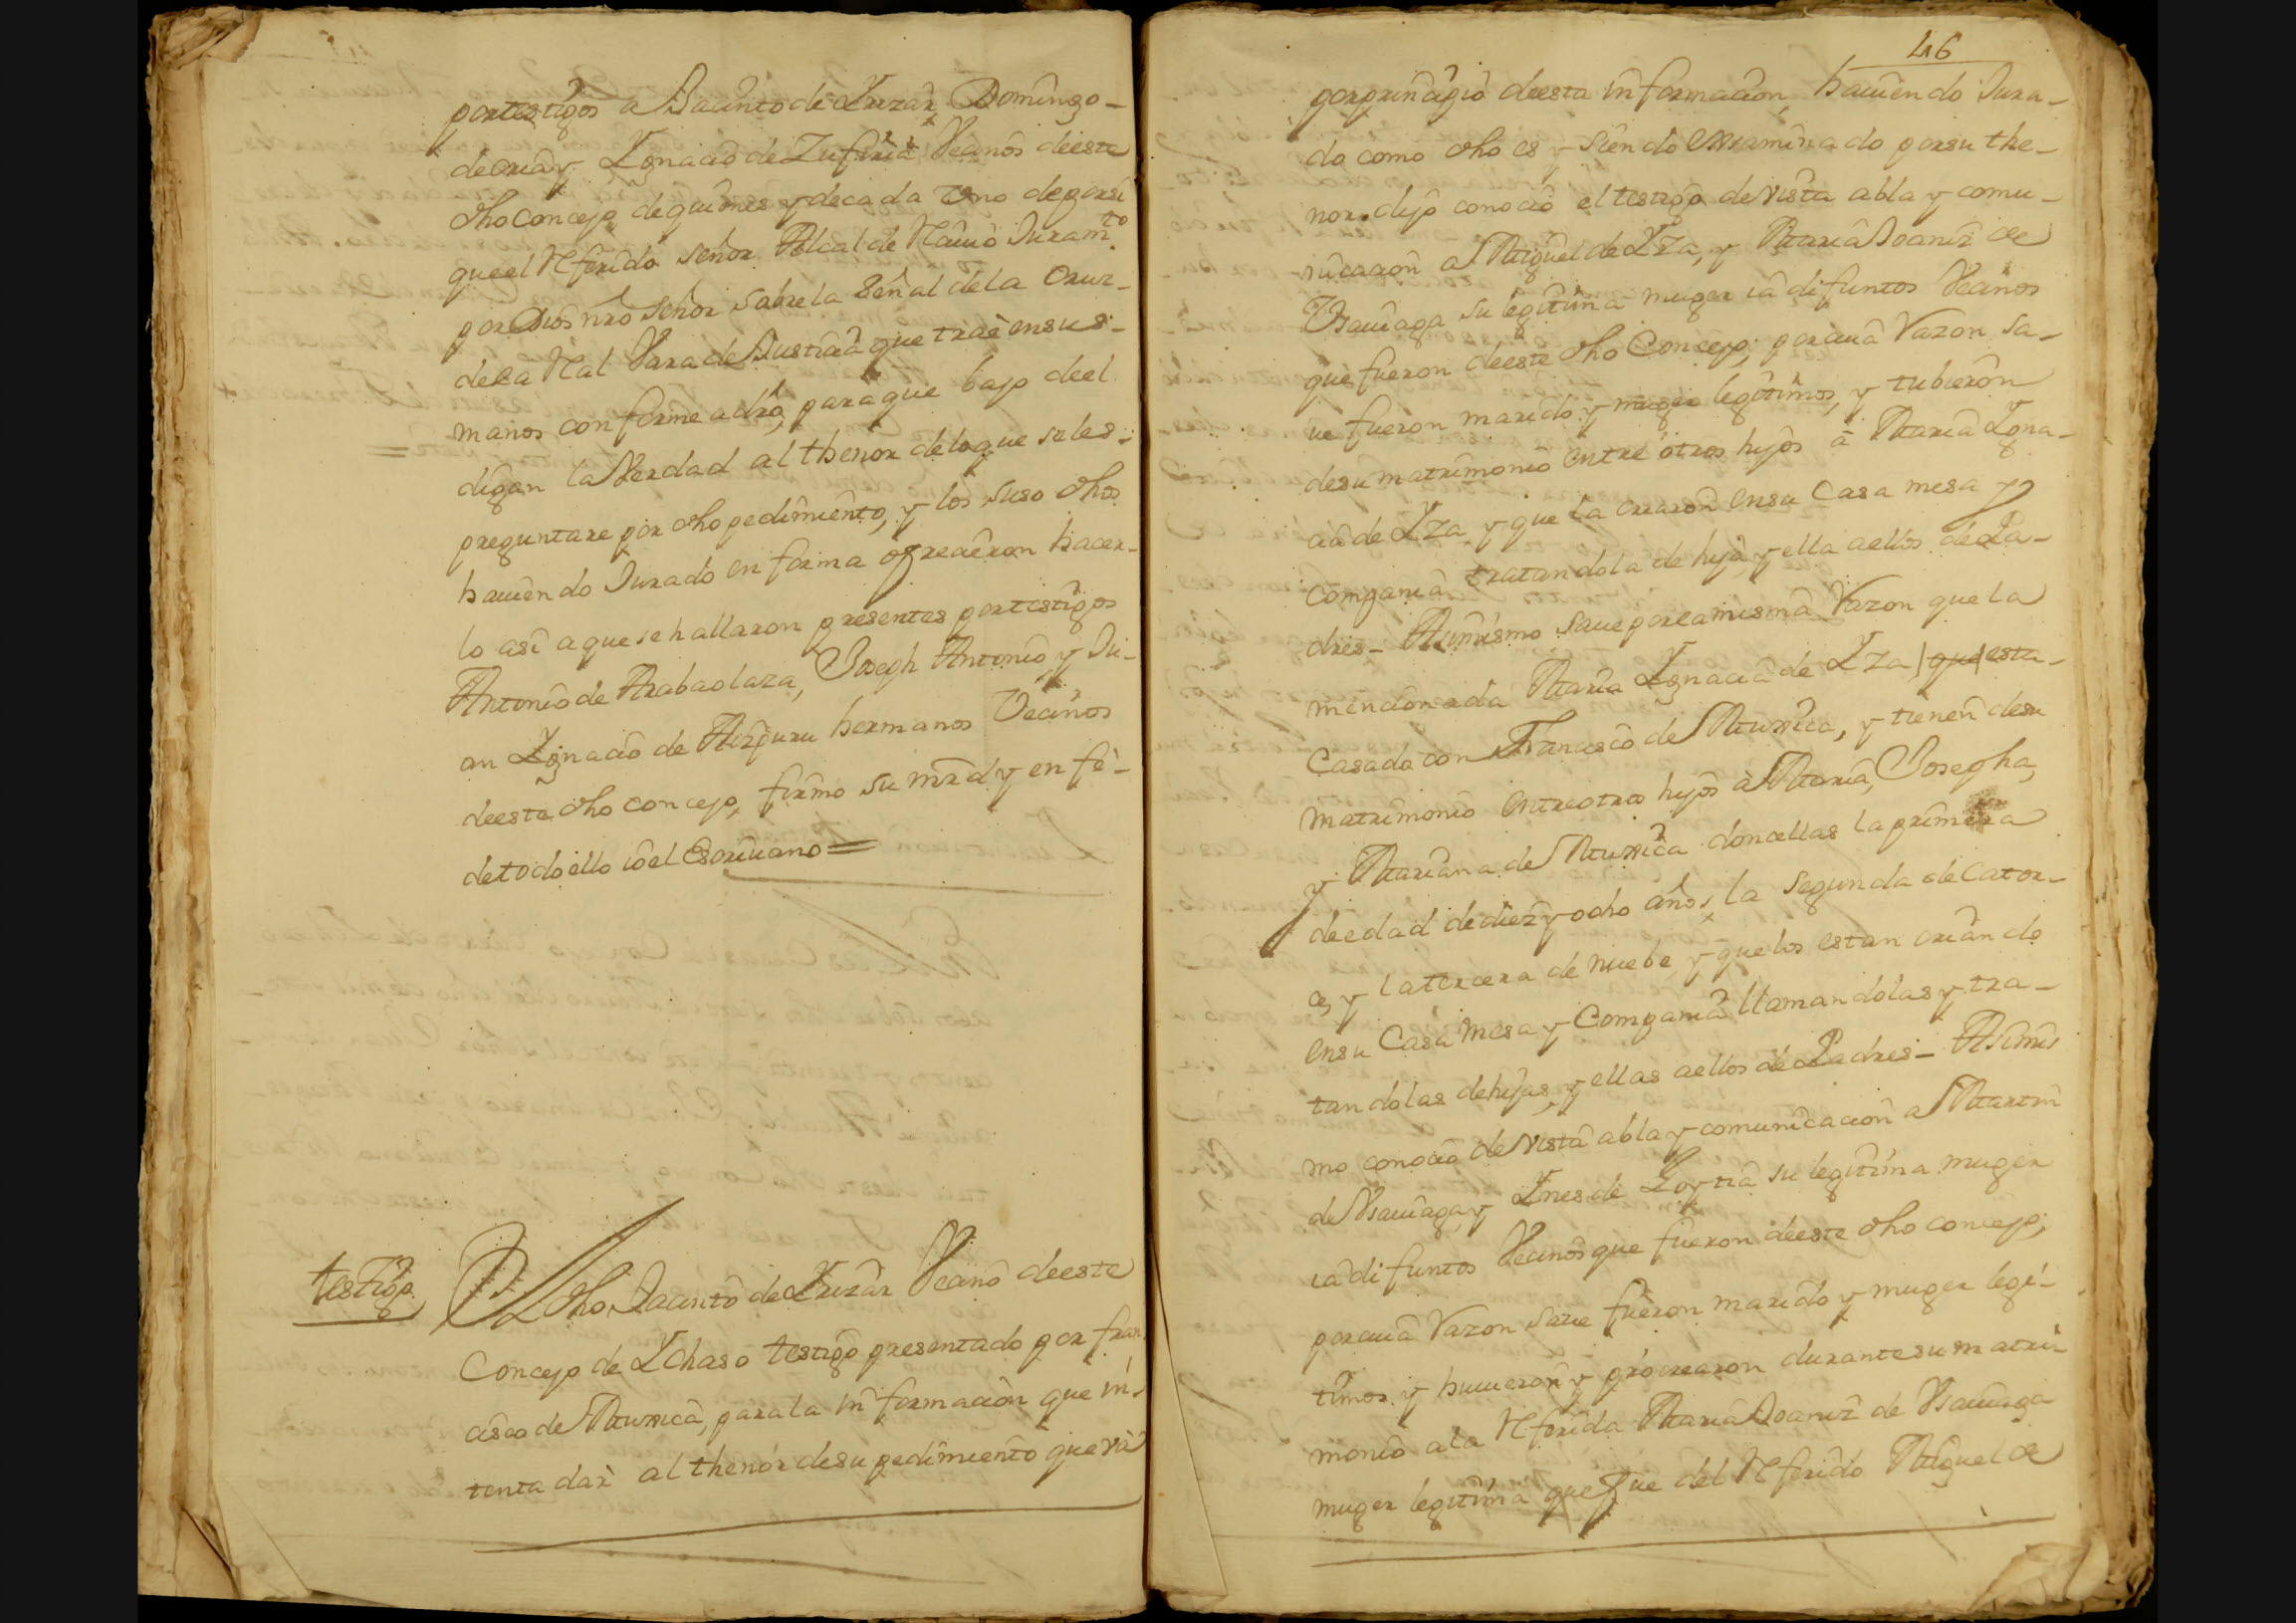 por testigos a Jacinto de Yrizar, Domingo
de oria y Ygnacio de Zufiria Vecinos de este
dho concejo, de quienes y de cada Vno de por si
que el referido señor Alcalde reciuio Juram.to
por Dios nrō señor sobre la señal de la cruz
de la real Vara de Justicia que trae en sus
manos conforme a drō, para que bajo de el
digan la Verdad al thenor de lo que se les
preguntare por dho pedimiento, y los suso dhos
hauiendo Jurado en forma ofrecieron hacer
lo asi a que se hallaron presentes por testigos
Antonio de Arabaolaza, Joseph Antonio y Ju-
an Ygnacio de Aizpuru hermanos Vecinos
de este dho concejo, firmo su mrd y en fè
de todo ello io el Escriuano =
testigo. El dho Jacinto de Yrizar Vecino de este
Concejo de Ychaso testigo presentado por fran
cisco de Muxica, para la informacion que in-
tenta dar al thenor de su pedimiento que và
46
por principio de esta informacion, hauiendo Jura-
do como dho es y siendo examinado por su the-
nor. dijo conocio el testigo de vista abla y comu-
nicacion a Miguel de Yza, y Maria Joaniz de
Vsauiaga su legitima muger ia difuntos Vecinos
que fueron de este dho Concejo; por cuia razon sa-
ue fueron marido y muger legitimos, y tubieron
de su matrimonio entre otros hijos à Maria Ygna-
cia de Yza y que la criaron en su Casa mesa y
compania tratandola de hija, y ella a ellos de Pa-
dres - Asimismo saue por ea misma razon que la
mencionada Maria Ygnacia de Yza |que| esta
Casada con Francisco de Muxica, y tienen de su
matrimonio entre otros hijos à Maria, Josepha,
y Mariana de Muxica doncellas la primera
de edad de diez y ocho años, la segunda de Cator-
ce, y la tercera de nuebe, y que los estan criando
en su Casa mesa y Compania llamandolas y tra-
tandolas de hijas, y ellas a ellos de Padres - Asimis
mo conocio de vista abla y comunicacion a Martin
de Vsauiaga, y Ynes de Loytia su legitima muger
ia difuntos Vecinos que fueron de este dho concejo;
por cuia razon saue fueron marido y muger legi-
timos y huuieron y procrearon durante su matri
monio a la referida Maria Joaniz de Vsauiaga
muger legitima que fue del referido Miguel de